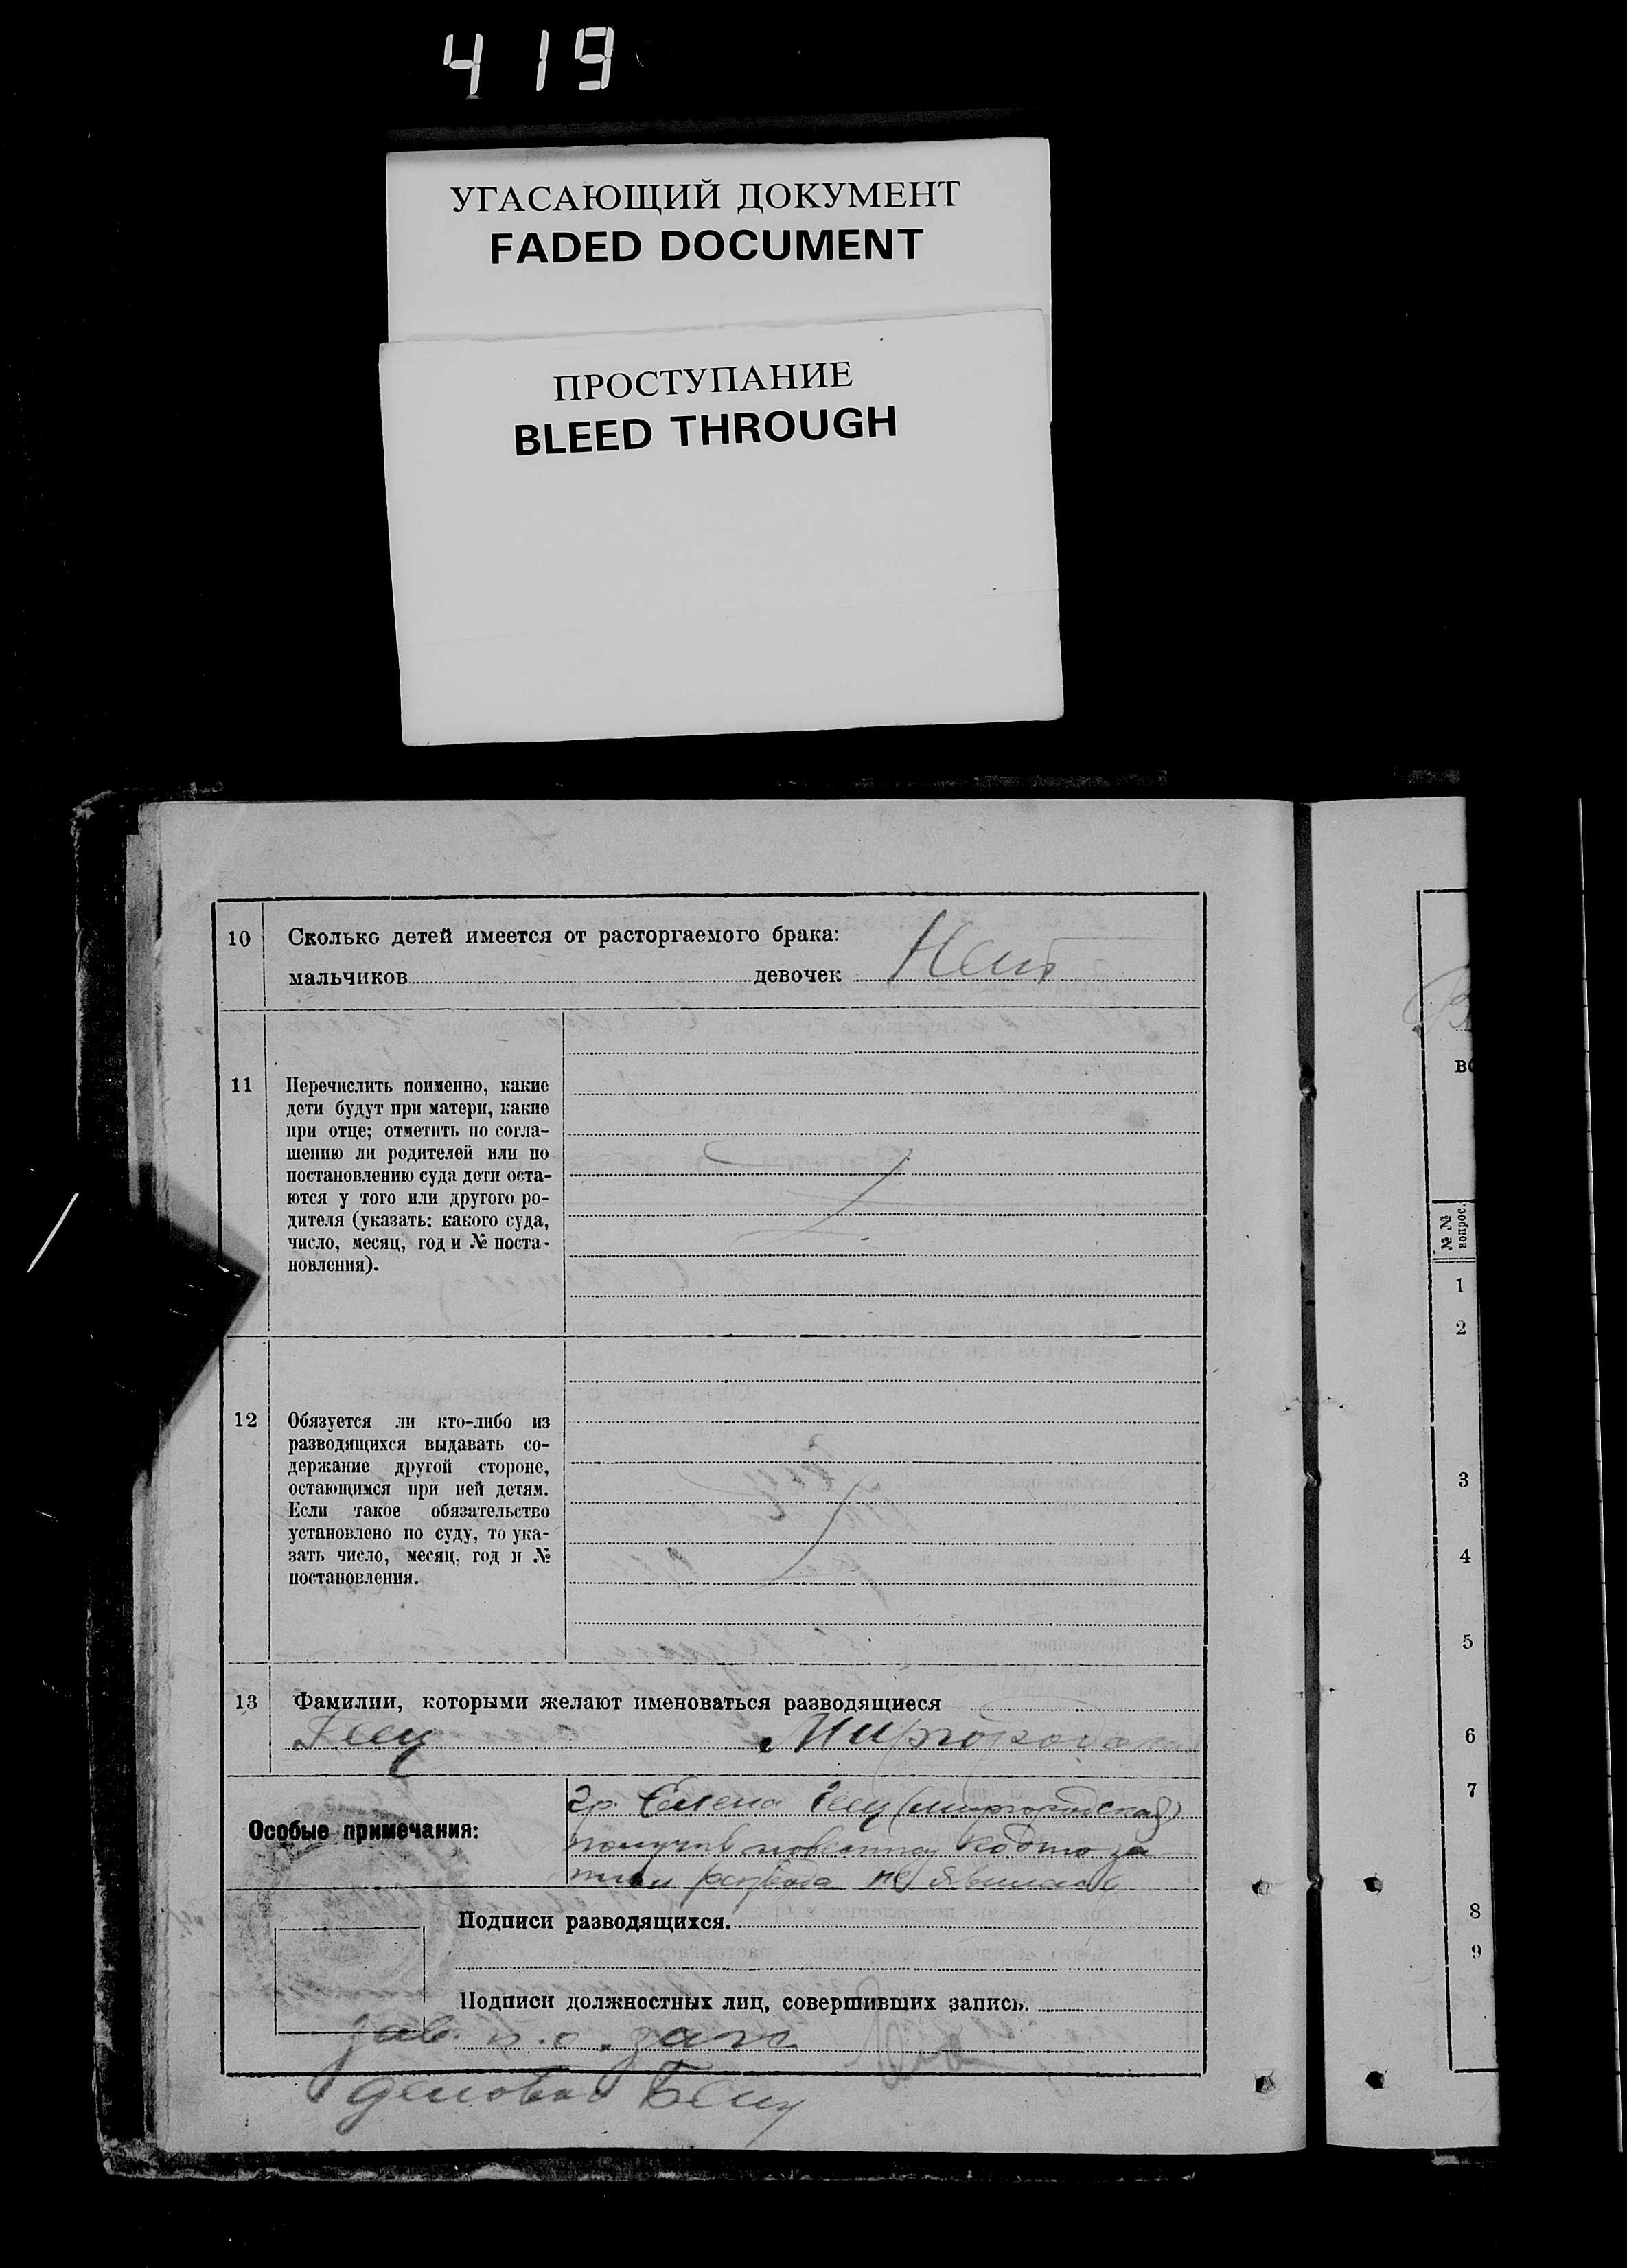 419
УГАСАЮЩИЙ ДОКУМЕНТ
FADED DOCUMENT
ПРОСТУПАНИЕ
BLEED THROUGH
10 Сколько детей имеется от расторгаемого брака:
мальчиков девочек Нет
11 Перечислить поименно, какие
дети будут при матери, какие
при отце; отметить по согла-
шению ли родителей или по
постановлению суда дети оста-
ются у того или другого ро-
дителя (указать: какого суда,
число, месяц, год и № поста-
новления).
12 Обязуется ли кто-либо из
разводящихся выдавать со-
держание другой стороне,
остающимся при ней детям.
Если такое обязательство
установлено по суду, то ука-
зать число, месяц, год и №
постановления.
13 Фамилии, которыми желают именоваться разводящиеся
Особые примечания:
гр. Елена
развода не явилась
Подписи разводящихся.
Подписи должностных лиц, совершивших запись.
зав.
№ №
вопрос.
1
2
3
4
5
6
7
8
9